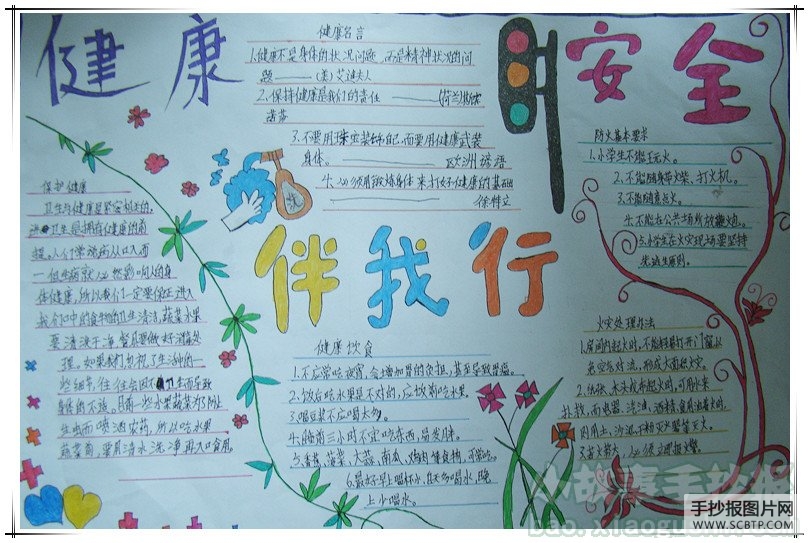 健康
安全
伴我行
健康名言
1.健康不是身体的状况问题,而是精神状况的问
题——(美)艾迪夫人
2.保持健康是我们的责任——(荷兰)斯宾
诺莎
3.不要用珠宝装饰自己,而要用健康武装
身体。——欧洲谚语
4.必须用锻炼身体来打好健康的基础
——徐特立
保护健康
卫生与健康是紧密相连的,
讲卫生是拥有健康的前
提。人们常说病从口入而
一但生病就必然影响人的身
体健康,所以我们一定要保证进入
我们口中的食物的卫生清洁,蔬菜水果
要清洗干净
理。如果我们忽视了生活中的一
些细节,往往会因
身体的不适。目前一些水果蔬菜为了防止
生虫而喷洒农药,所以吃水果、
蔬菜前,要用清水洗净再入口食用。
健康饮食
1.不应常吃夜宵,会增加胃的负担,甚至导致胃癌。
2.饭后吃水果是不对的,应饭前吃水果。
3.喝豆浆不应喝太多。
4.睡前三小时不宜吃东西,易发胖。
5.香蕉、菠菜、大蒜、南瓜、鸡肉等食物,
6.最好早上喝杯水,白天多喝水,晚
上少喝水。
防火基本要求
1.小学生不能玩火。
2.不能随身带火柴、打火机。
3.不能随意点火。
4.不能在公共场所放鞭炮。
5.小学生在火灾现场要坚持
先逃生原则。
火灾处理办法
1.房间内起火时,不能轻易打开门窗以
免空气对流,形成大面积火灾。
2.纸张、木头或布起火时,可用水来
扑救,而电器、汽油、酒精、食用油着火时,
则用土、沙泥、干粉灭火器等灭火。
3.若火势大,必须立即报火警。
小故事手抄报
bao.xiaogushi.com
手抄报图片网
WWW.SCBTP.COM